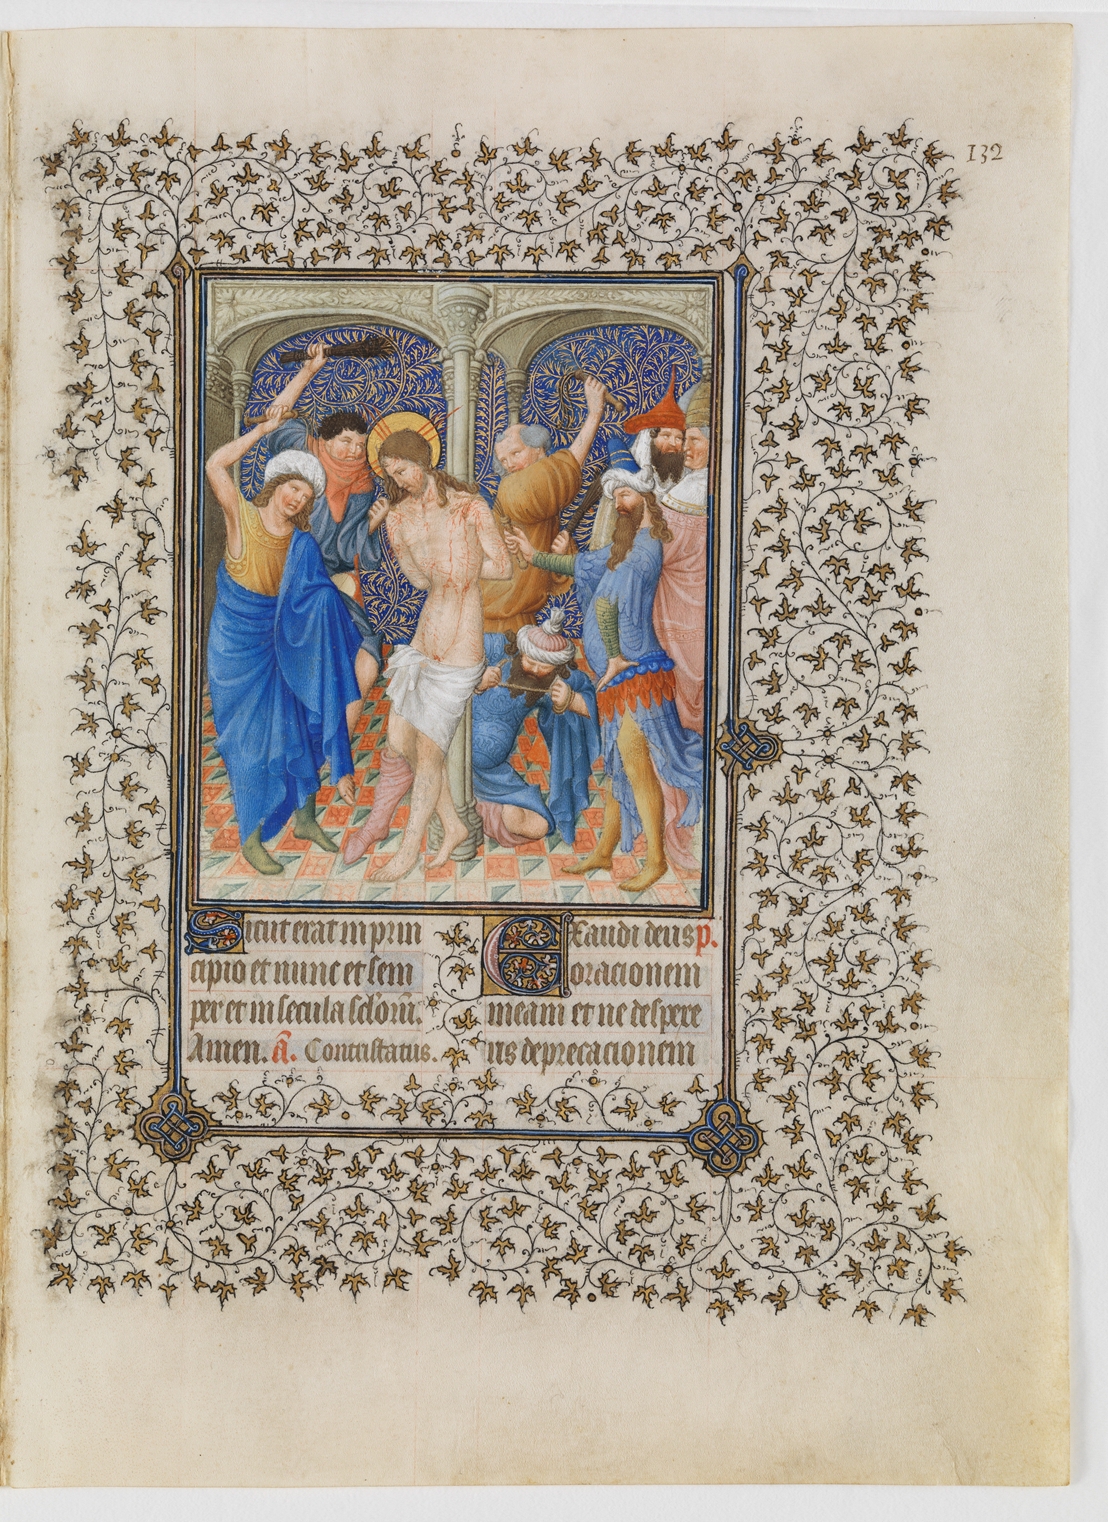 132
Sicut erat in prin
cipio et nunc et sem
per et in secula sclõrũ.
Amen. ã. Contristatus.
Exaudi deus p.
orationem
meam et ne despexe
ris deprecacionem